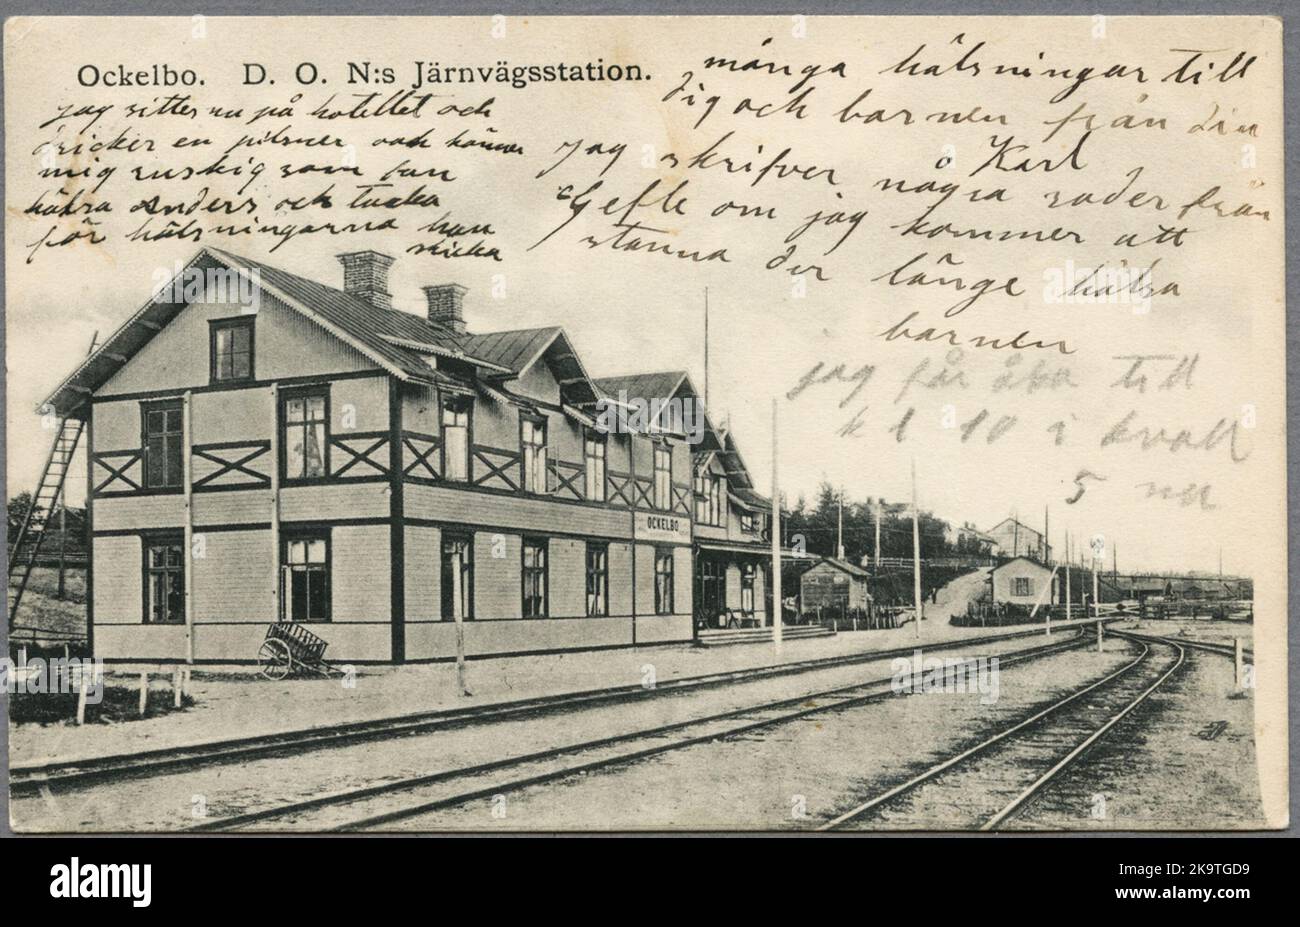 Ockelbo. D. O. N:s Järnvägsstation.
jag sitter nu på hotellet och
dricker en pilsner och känner
mig ruskig som fan
hälsa Anders och tacka
för hälsningarna han
skicka
många hälsningar till
dig och barnen från din
Karl
jag skrifver några rader från
Gefle om jag kommer att
stanna der länge hälsa
barnen
jag får åka till
kl 10 i kvall
5 nu
OCKELBO
alamy
Image ID: 2K9TGD9
www.alamy.com